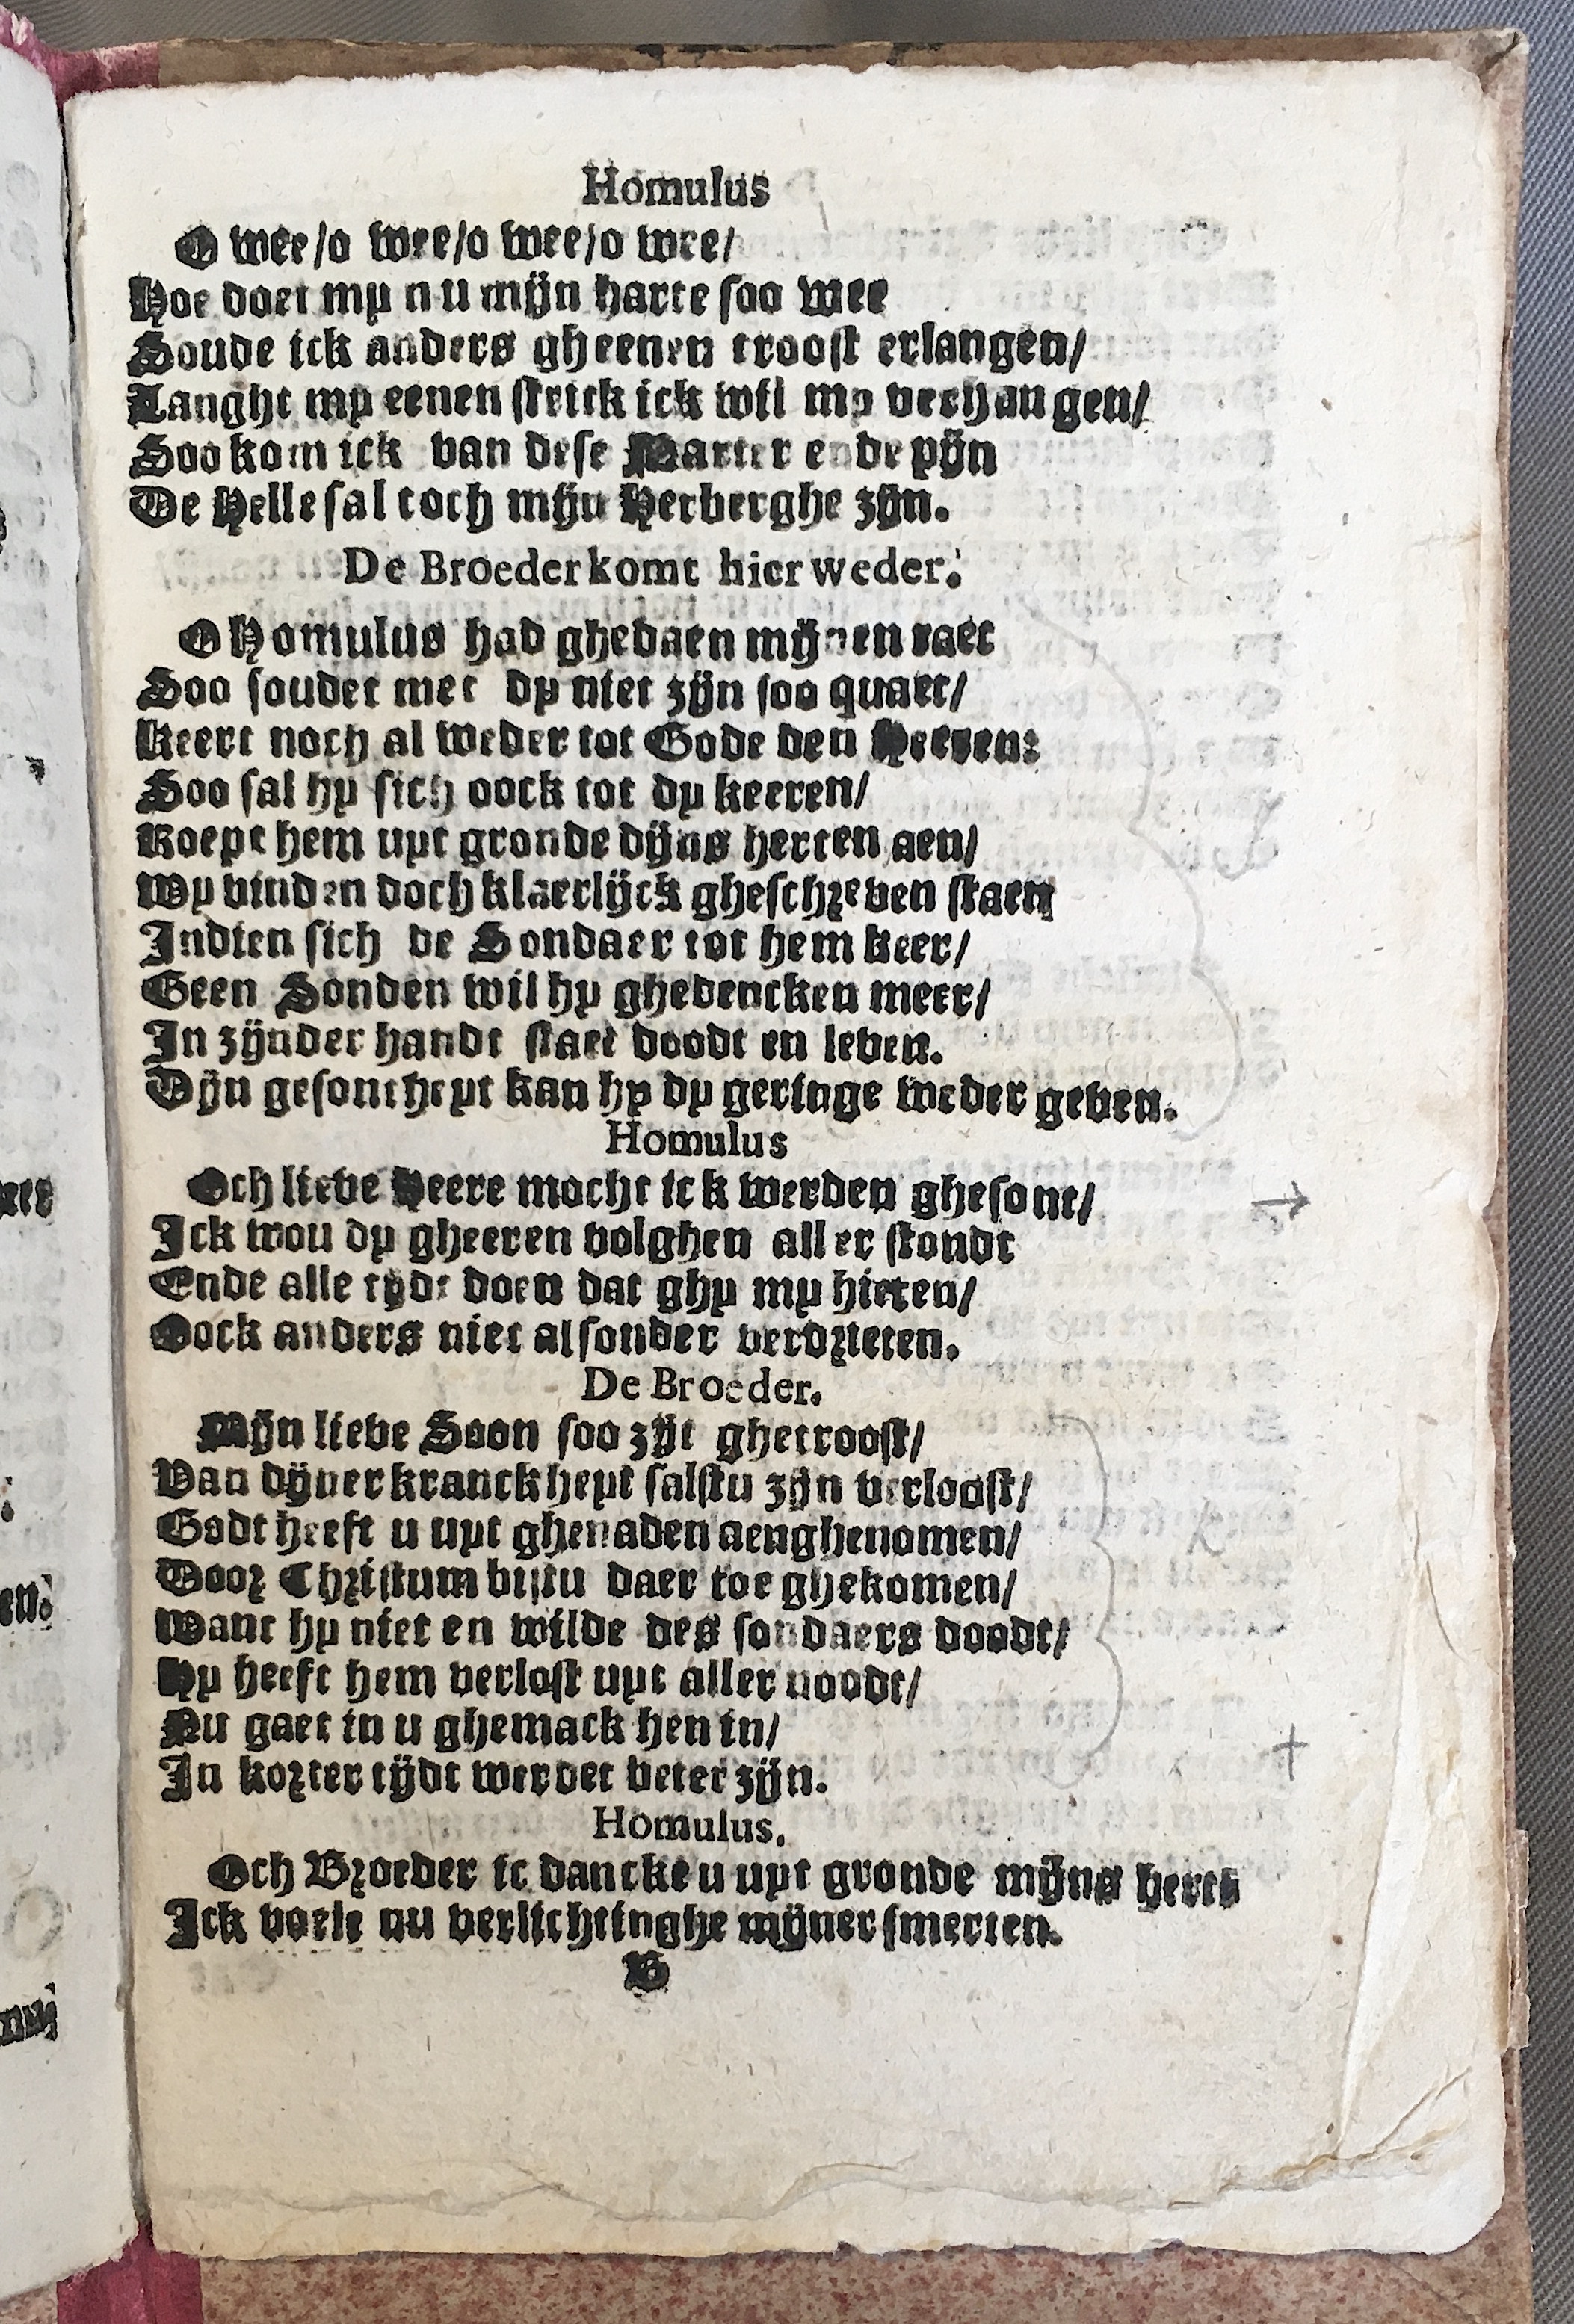 Homulus
O wee/o wee/o wee/o wee/
Hoe doet my nu mijn harte soo wee
Soude ick anders gheenen troost erlangen/
Langht my eenen strick ick wil my verhangen/
Soo kom ick van dese Marter ende pijn
De Helle sal toch mijn Herberghe zijn.
De Broeder komt hier weder.
O Homulus had ghedaen mijnen raet
Soo soudet met dy niet zijn soo quaet/
Keert noch al weder tot Gode den Heeren:
Soo sal hy sich oock tot dy keeren/
Roept hem uyt gronde dijns herten aen/
Wy vinden doch klaerlijck gheschreven staen
Indien sich de Sondaer tot hem keer/
Geen Sonden wil hy ghedencken meer/
In zijnder handt staet doodt en leven.
Dijn gesontheyt kan hy dy geringe weder geven.
Homulus
Och lieve Heere mocht ick werden ghesont/
Ick wou dy gheeren volghen aller stondt
Ende alle tydt doen dat ghy my hieten/
Oock anders niet al sonder verdrieten.
De Broeder.
Mijn lieve Soon soo zijt ghetroost/
Van dijner kranckheyt salstu zijn verloost/
Godt heeft u uyt ghenaden aenghenomen/
Door Christum bistu daer toe ghekomen/
Want hy niet en wilde des sondaers doodt/
Hy heeft hem verlost uyt aller noodt/
Nu gaet in u ghemack hen in/
In korter tijdt werdet beter zijn.
Homulus.
Och Broeder ic dancke u uyt gronde mijns herts
Ick voele nu verlichtinghe mijner smerten.
B